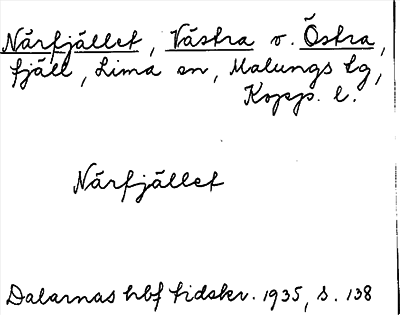 Närfjället, Västra o. Östra,
fjäll, Lima sn, Malungs tg,
Kopp. l.
Närfjället
Dalarnas hbf tidskr. 1935, s. 138